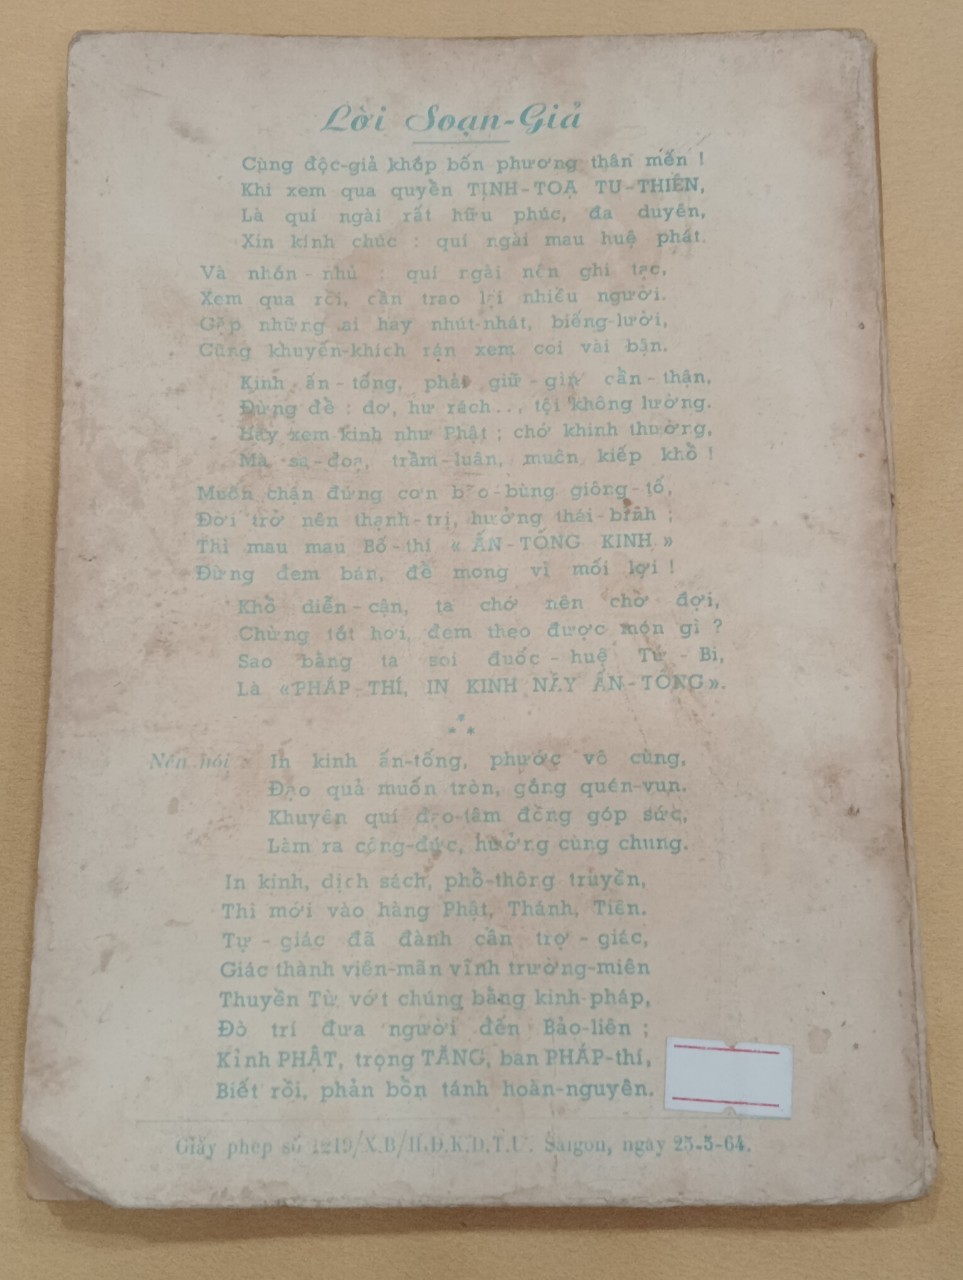 Lời Soạn-Giả
Cùng độc-giả khắp bốn phương thân mến !
Khi xem qua quyền TỊNH-TOẠ TU-THIỀN,
Là quí ngài rất hữu phúc, đa duyên,
Xin kính chúc : quí ngài mau huệ phát.
Và nhắn-nhủ : quí ngài nên ghi tạc,
Xem qua rồi, cần trao lại nhiều người.
Gặp những ai hay nhút-nhát, biếng-lười,
Cũng khuyến-khích rán xem coi vài bận.
Kinh ấn-tống, phải giữ-gìn cẩn-thận,
Đừng đề : dơ, hư rách..., tội không lường.
Hãy xem kinh như Phật ; chớ khinh thường,
Mà sa-đọa, trầm-luân, muôn kiếp khổ !
Muốn chận đứng cơn bão-bùng giông-tố,
Đời trở nên thạnh-trị, hưởng thái-bình ;
Thì mau mau Bố-thí « ẤN-TỐNG KINH »
Đừng đem bán, đề mong vì mối lợi !
Khổ diễn-cận, ta chớ nên chờ đợi,
Chừng tắt hơi, đem theo được món gì ?
Sao bằng ta soi đuốc-huệ Từ-Bi,
Là «PHÁP-THÍ, IN KINH NẦY ẤN-TỐNG».
Nên nói : In kinh ấn-tống, phước vô cùng,
Đạo quả muốn tròn, gắng quén-vun.
Khuyên quí đạo-tâm đồng góp sức,
Làm ra công-đức, hưởng cùng chung.
In kinh, dịch sách, phổ-thông truyền,
Thì mới vào hàng Phật, Thánh, Tiên.
Tự-giác đã đành cần trợ-giác,
Giác thành viên-mãn vĩnh trường-miên
Thuyền Từ vớt chúng bằng kinh-pháp,
Đò trí đưa người đến Bảo-liên ;
Kỉnh PHẬT, trọng TĂNG, ban PHÁP-thí,
Biết rồi, phản bồn tánh hoàn-nguyên.
Giấy phép số 1219/X.B/H.Đ.K.D.T.U. Saigon, ngày 25-5-64.